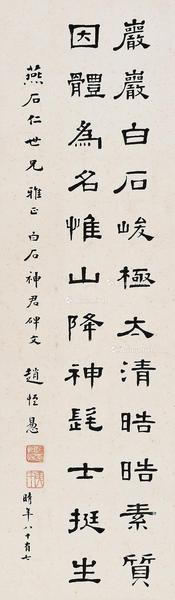 巖巖白石峻極太清晧晧素質
因體為名惟山降神髦士挺生
燕石仁世兄雅正白石神君碑文趙恆愚
時年八十有七